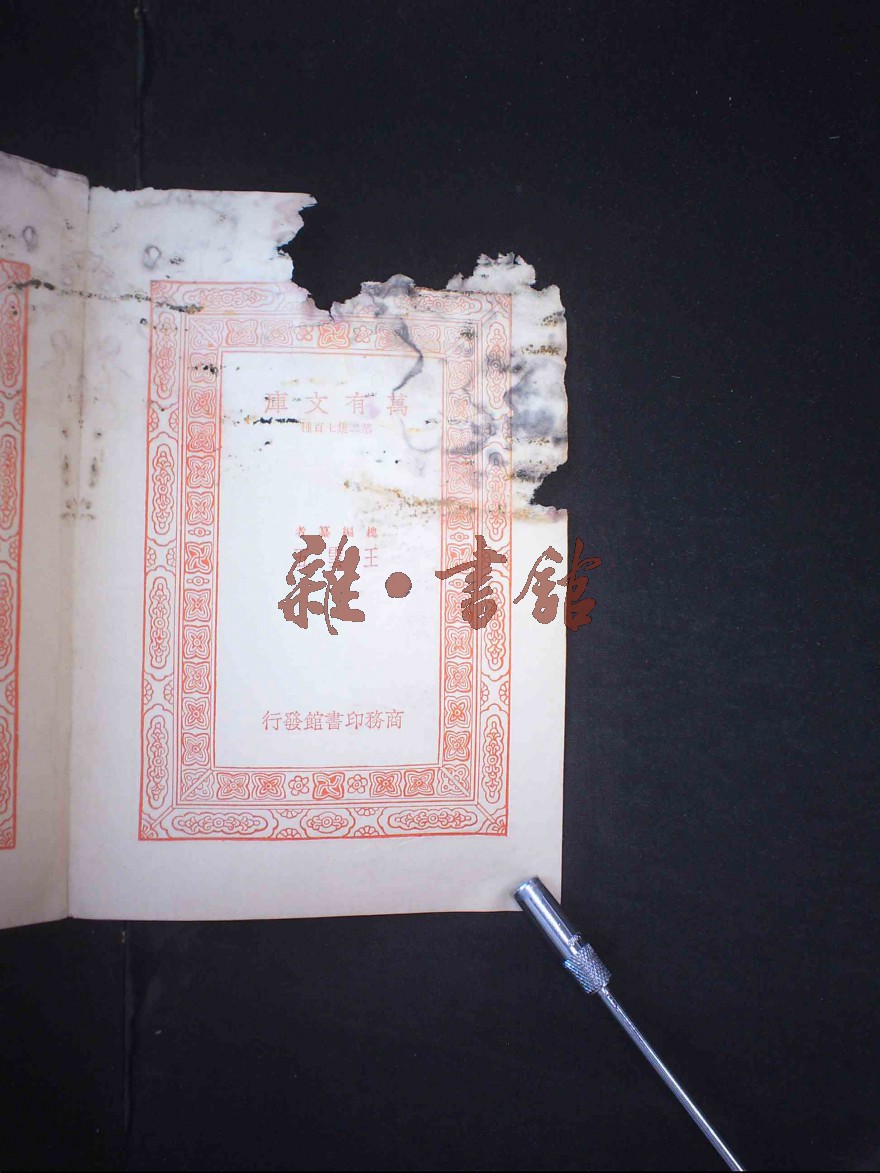 萬有文庫
第二集七百種
總編纂者
王
商務印書館發行
雜·書館